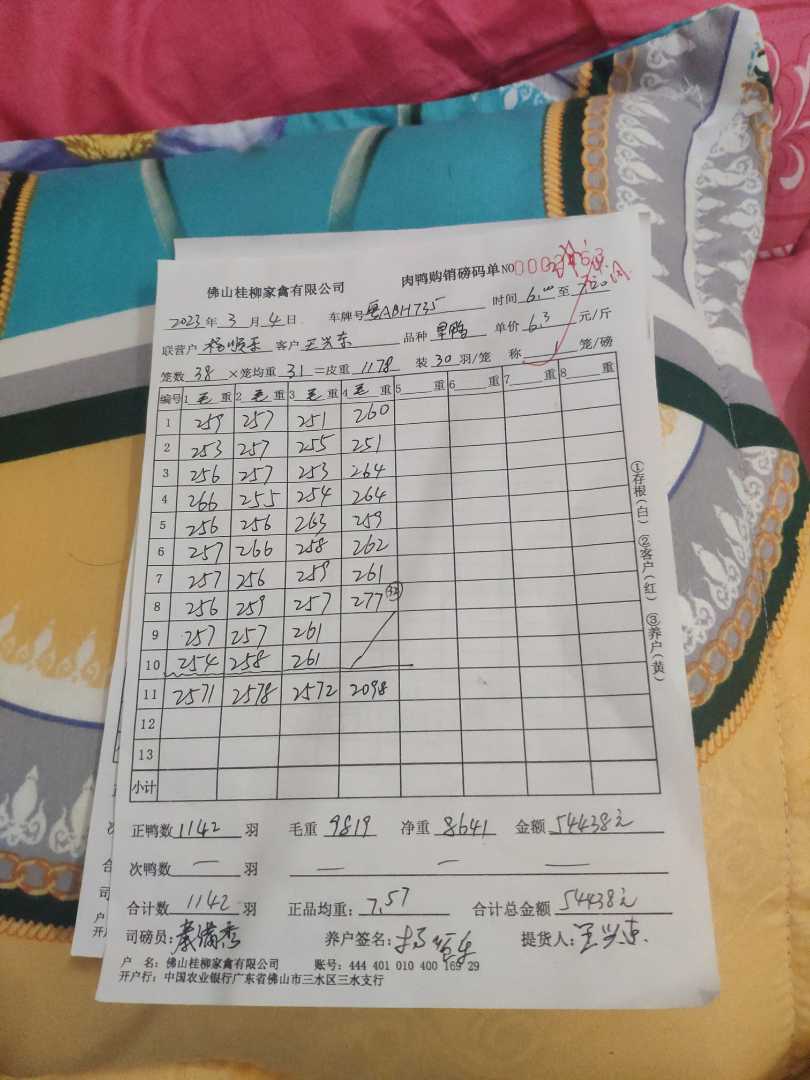 佛山桂柳家禽有限公司 肉鸭购销磅码单 NO
2023年3月4日 车牌号粤ABH735 时间6.00至7.20
联营户 客户王兴东 品种旱鸭 单价6.3元/斤
笼数38×笼均重31=皮重1178 装30羽/笼 称1笼/磅
编号 1毛重 2毛重 3毛重 4毛重 5重 6重 7重 8重
1 259 257 251 260
2 253 257 255 251
3 256 257 253 264
4 266 255 254 264
5 256 256 263 259
6 257 266 258 262
7 257 256 259 261
8 256 259 257 277 32
9 257 257 261
10 254 258 261
11 2571 2578 2572 2098
12
13
小计
正鸭数1142羽 毛重9819 净重8641 金额54438元
次鸭数—羽 — — —
合计数1142羽 正品均重:7.57 合计总金额54438元
司磅员: 养户签名: 提货人:王兴东
户 名:佛山桂柳家禽有限公司 账号:444 401 010 400 169 29
开户行:中国农业银行广东省佛山市三水区三水支行
①存根(白) ②客户(红) ③养户(黄)